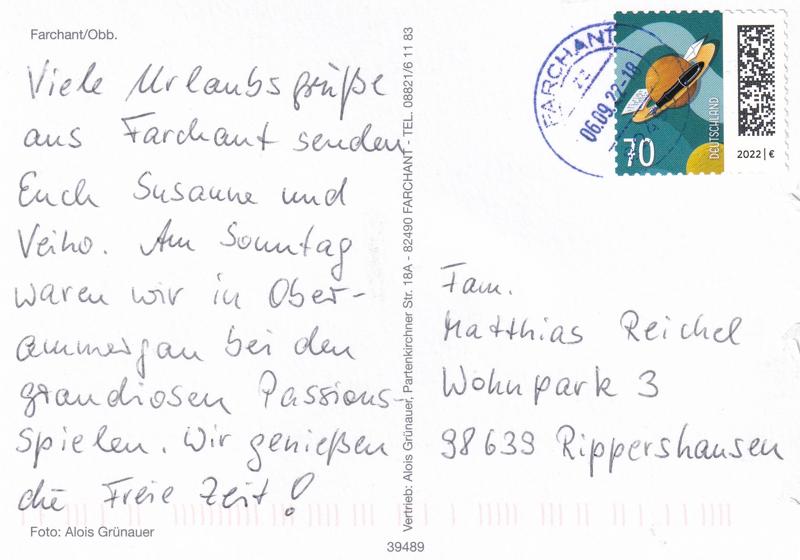 Farchant/Obb.
Viele Urlaubsgrüße
aus Farchant senden
Euch Susanne und
Veiko. Am Sonntag
waren wir in Ober-
ammergau bei den
grandiosen Passions-
spielen. Wir genießen
die Freie Zeit!
Foto: Alois Grünauer
Vertrieb: Alois Grünauer, Partenkirchner Str. 18A - 82490 FARCHANT - TEL. 08821/6 11 83
39489
FARCHANT
06.09.22-18
70
DEUTSCHLAND
2022 | €
Fam.
Matthias Reichel
Wohnpark 3
98639 Rippershausen